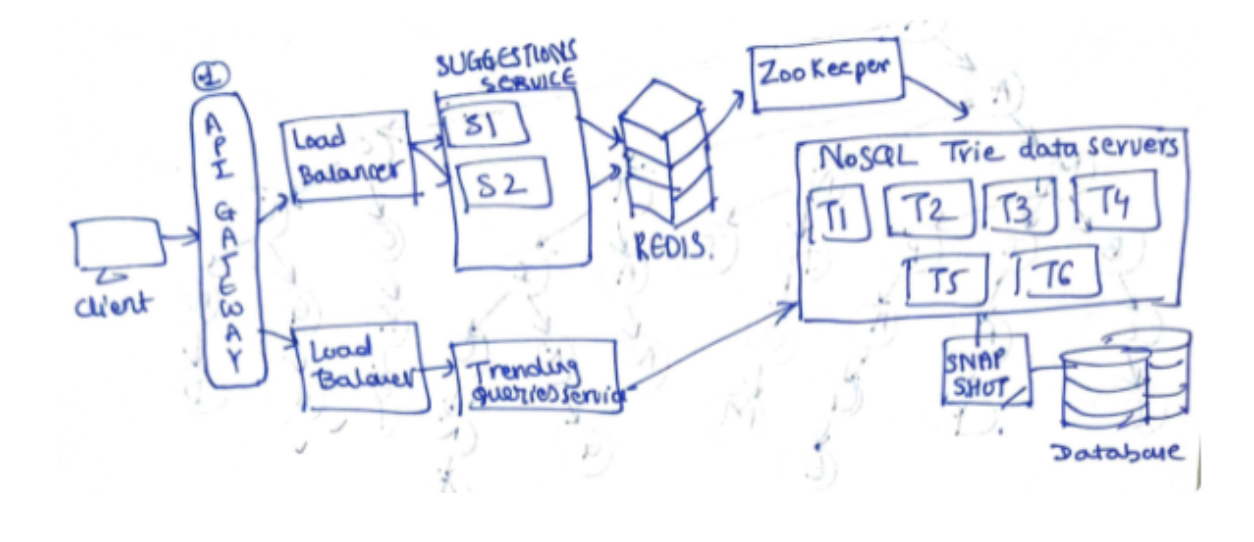 1
API GATEWAY
client
Load
Balancer
SUGGESTIONS
SERVICE
S1
S2
REDIS.
ZooKeeper
NoSQL Trie data servers
T1 T2 T3 T4
T5 T6
Load
Balancer
Trending
queries servic
SNAP
SHOT
Database